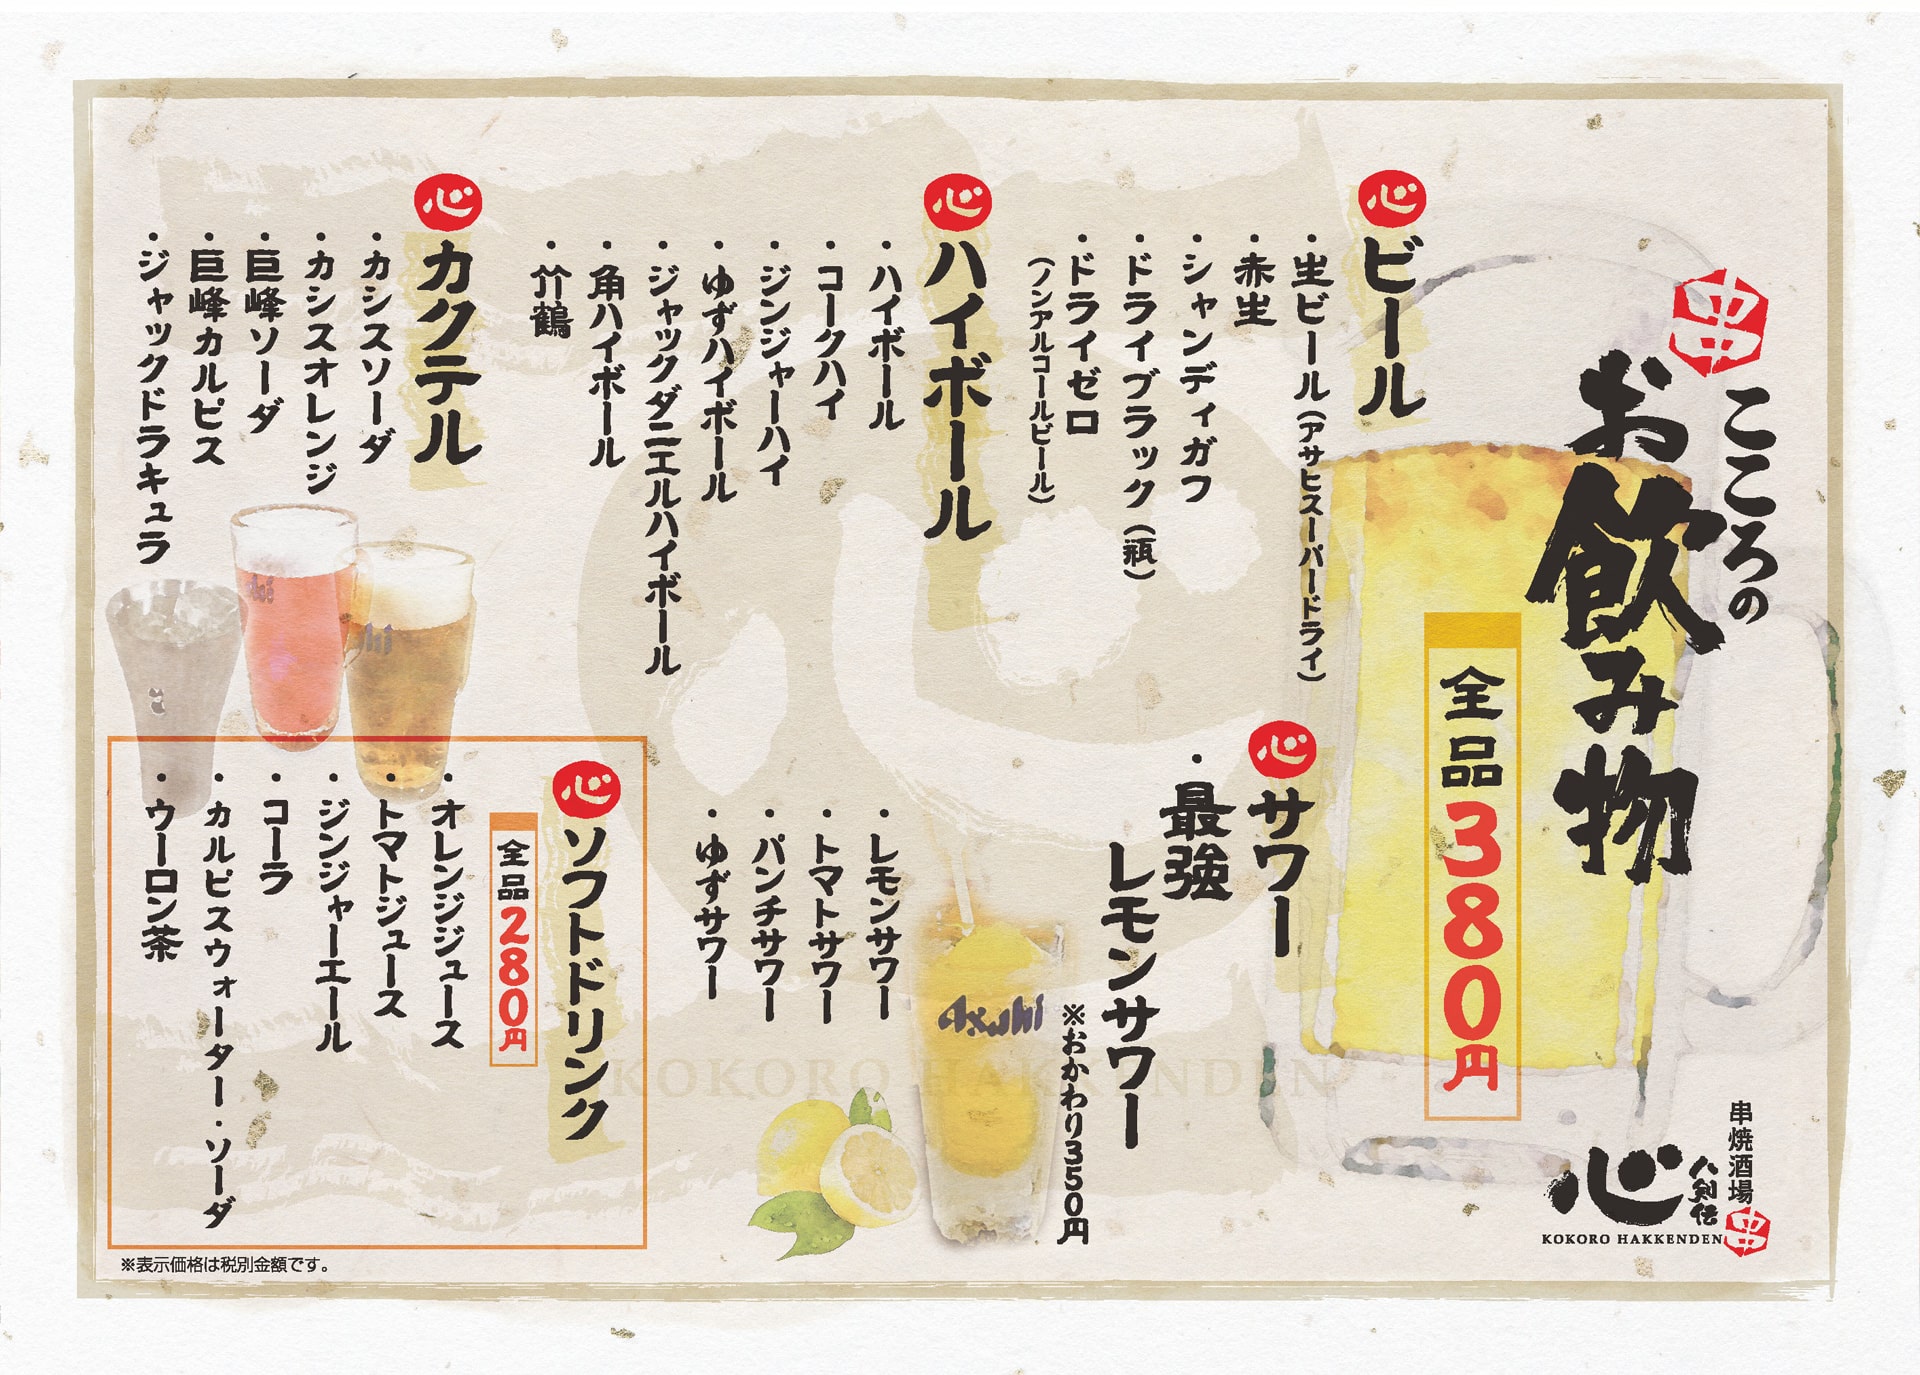 串
こころの
お飲み物
全品380円
心
ビール
・生ビール(アサヒスーパードライ)
・赤生
・シャンディガフ
・ドライブラック(瓶)
・ドライゼロ
(ノンアルコールビール)
心
ハイボール
・ハイボール
・コークハイ
・ジンジャーハイ
・ゆずハイボール
・ジャックダニエルハイボール
・角ハイボール
・竹鶴
心
カクテル
・カシスソーダ
・カシスオレンジ
・巨峰ソーダ
・巨峰カルピス
・ジャックドラキュラ
心
サワー
・最強
レモンサワー
※おかわり350円
・レモンサワー
・トマトサワー
・パンチサワー
・ゆずサワー
Asahi
心
ソフトドリンク
全品280円
・オレンジジュース
・トマトジュース
・ジンジャーエール
・コーラ
・カルピスウォーター・ソーダ
・ウーロン茶
※表示価格は税別金額です。
KOKORO HAKKENDEN
串焼酒場
串
八剣伝
心
KOKORO HAKKENDEN